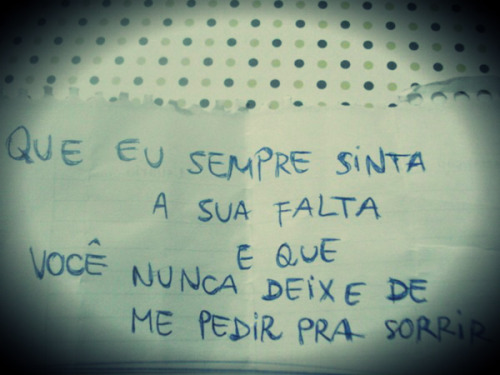 QUE EU SEMPRE SINTA
A SUA FALTA
E QUE
VOCÊ NUNCA DEIXE DE
ME PEDIR PRA SORRIR